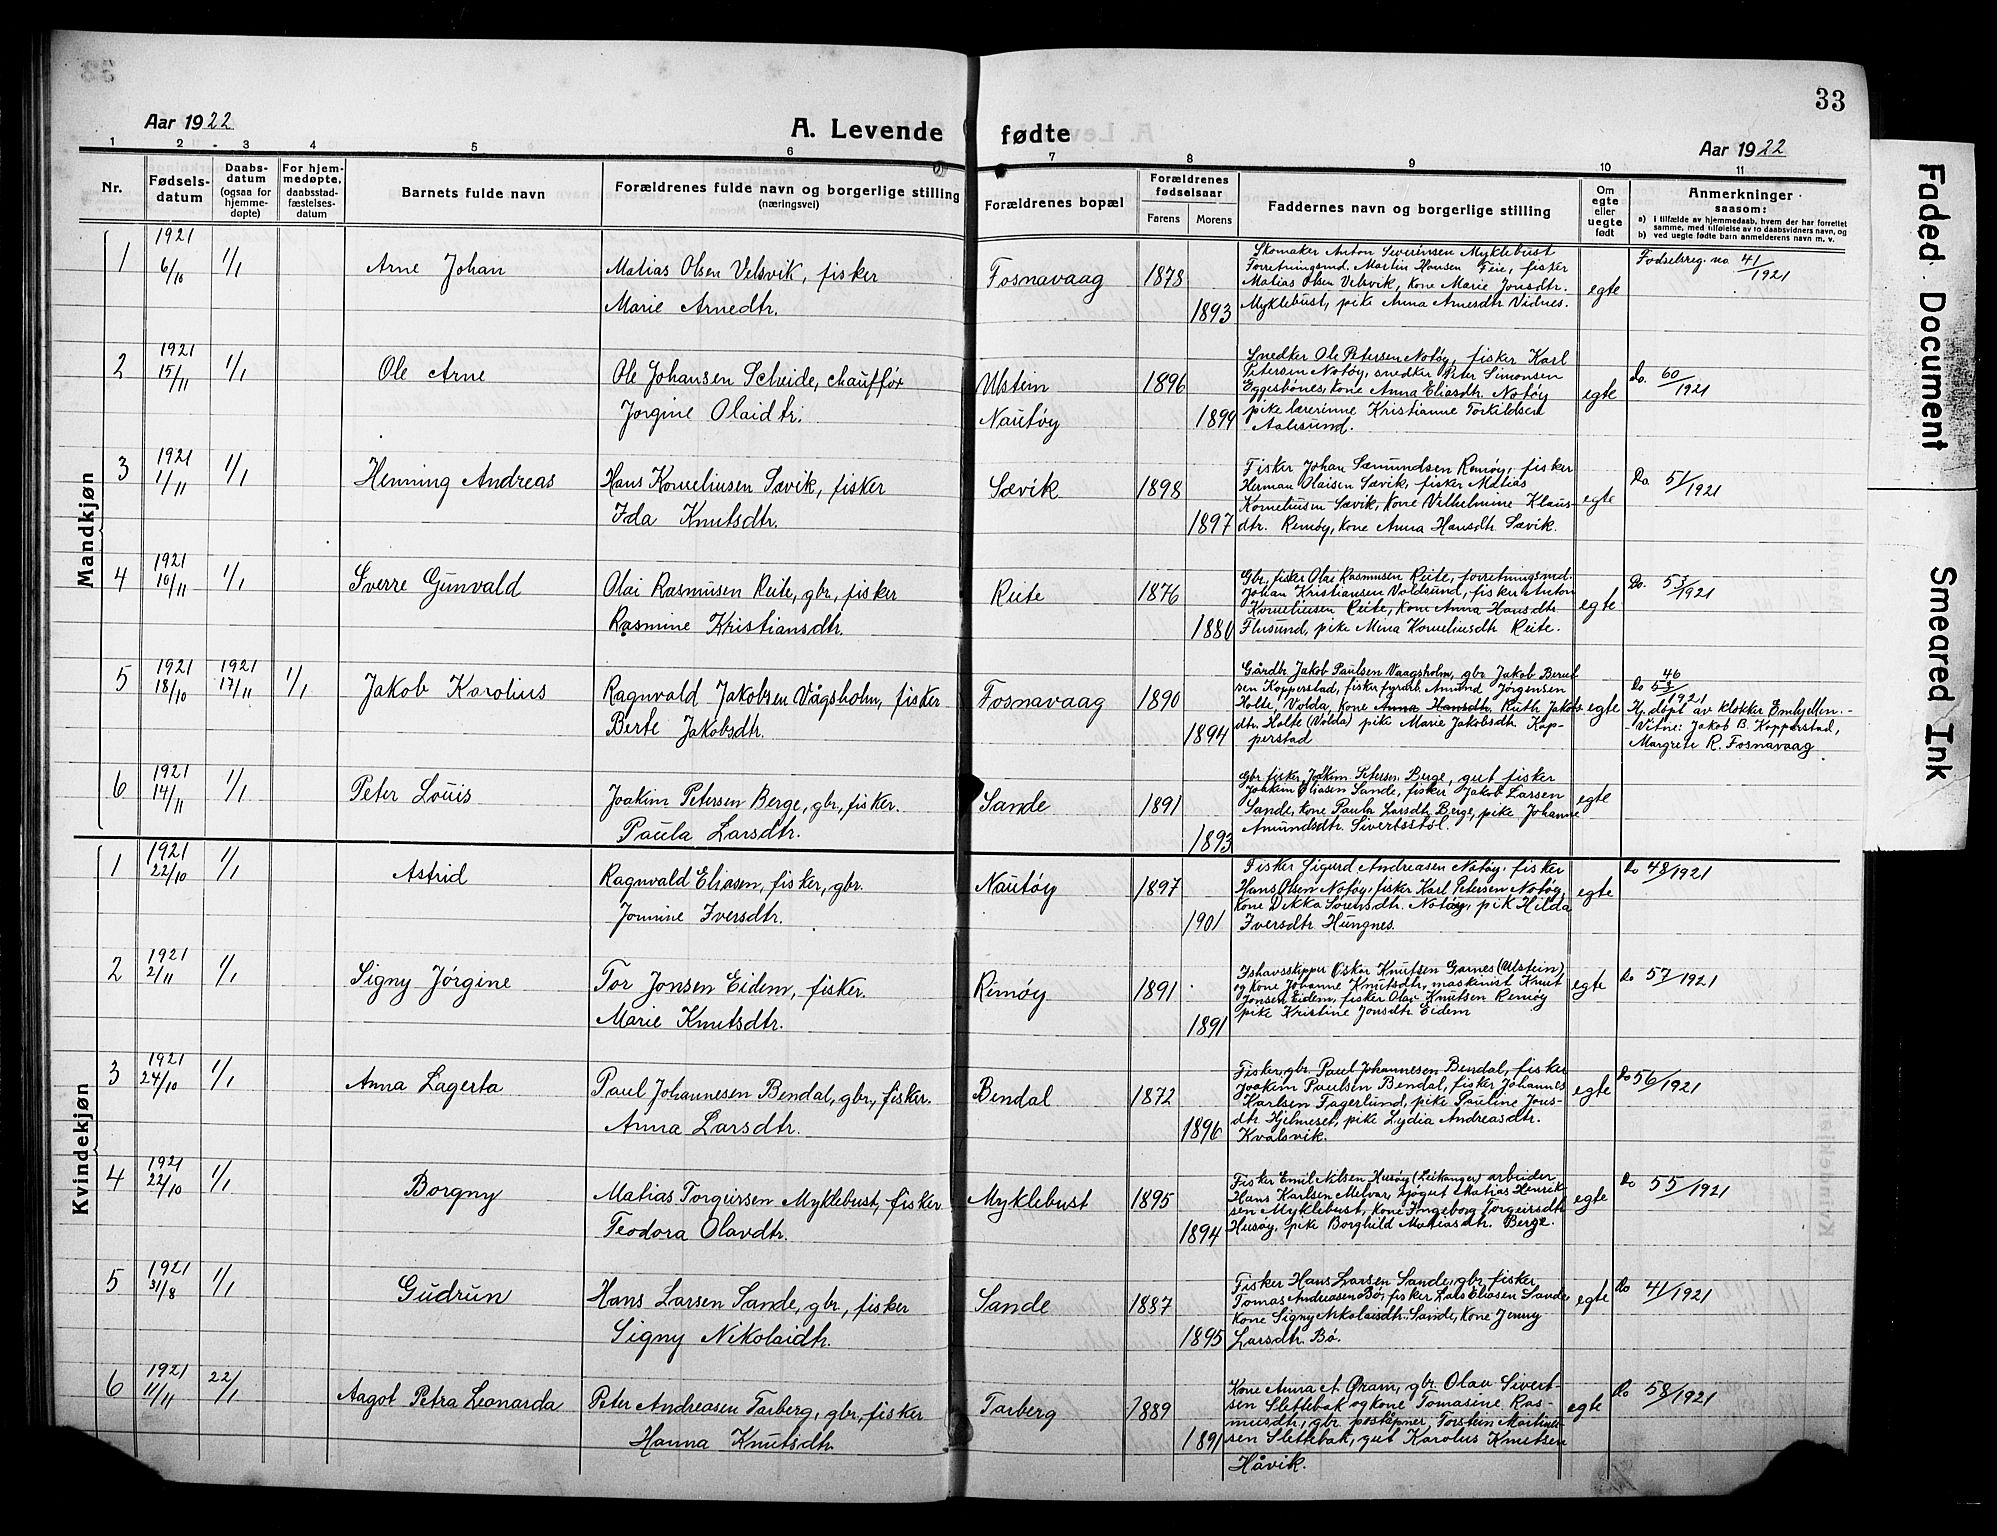 33
Aar 1922
A. Levende fødte
Aar 1922
1 2 3 4 5 6 7 8 9 10 11
Nr.
Fødsels-
datum
Daabs-
datum
(ogsaa for
hjemme-
døpte)
For hjem-
medøpte,
daabsstad-
fæstelses-
datum
Barnets fulde navn
Forældrenes fulde navn og borgerlige stilling
(næringsvei)
Forældrenes bopæl
Forældrenes
fødselsaar
Farens
Morens
Faddernes navn og borgerlige stilling
Om
egte
eller
uegte
født
Anmerkninger
saasom:
a) I tilfælde av hjemmedaab, hvem der har forrettet
samme, med tilføielse av to daabsvidners navn, og
b) ved uegte fødte barn anmelderens navn m. v.
Mandkjøn
1
1921
6/10
1/1
Arne Johan
Matias Olsen Velsvik, fisker
Marie Arnedtr.
Fosnavaag
1878
1893
Skomaker Anton Severinsen Myklebust
Forretningsmd. Martin Hansen Feie, fisker
Matias Olsen Velsvik, kone Marie Jonsdtr.
Myklebust, pike Anna Arnesdtr Vidnes.
egte
Fødselsreg. no. 41/1921
2
1921
15/11
1/1
Ole Arne
Ole Johansen Scheide, chauffør
Jørgine Olaidtr.
Ulstein
Nautøy
1896
1899
Snedker Ole Petersen Notøy, fisker Karl
Petersen Notøy, snedker Peter Simonsen
Eggesbønes, kone Anna Eliasdtr. Notøy
pike lærerinne Kristianne Torkildsen
Aalesund.
egte
Do. 60/1921
3
1921
1/11
1/1
Henning Andreas
Hans Korneliusen Sævik, fisker
Ida Knutsdtr.
Sævik
1898
1897
Fisker Johan Sæmundsen Remøy, fisker
Herman Olaisen Sævik, fisker Matias
Korneliusen Sævik, kone Vilhelmine Klaus-
dtr. Remøy, kone Anna Hansdtr Sævik.
egte
Do 51/1921
4
1921
10/11
1/1
Sverre Gunvald
Olai Rasmusen Reite, gbr, fisker
Rasmine Kristiansdtr.
Reite
1876
1880
Gbr, fisker Olai Rasmusen Reite, forretningsmd.
Johan Kristiansen Voldsund, fisker Anton
Korneliusen Reite, kone Anna Hansdtr
Flusund, pike Mina Korneliusdtr Reite.
egte
Do. 53/1921
5
1921
18/10
1921
17/11
1/1
Jakob Karolius
Ragnvald Jakobsen Vågsholm, fisker
Berte Jakobsdtr.
Fosnavaag
1890
1894
Gårdbr Jakob Paulsen Vaagsholm, gbr Jakob Berut
sen Kopperstad, fisker fyrarb. Amund Jørgensen
Holte, Volda, kone Anna Hansdtr. Ruth Jakobs
dtr. Holte (Volda) pike Marie Jakobsdtr Kop-
perstad
egte
46
Do 53/1921
Hj. døpt av klokker Emhjellen.
- Vitne: Jakob B. Kopperstad,
Margrete R. Fosnavaag
6
1921
14/11
1/1
Peter Louis
Joakim Petersen Berge, gbr, fisker.
Paula Larsdtr.
Sande
1891
1893
Gbr. fisker Joakim Petersen Berge, gut fisker
Joakim Eliasen Sande, fisker Jakob Larsen
Sande, kone Paula Larsdtr Berge, pike Johanne
Amundsdtr. Sivertsstøl.
egte
Kvindekjøn
1
1921
22/10
1/1
Astrid
Ragnvald Eliasen, fisker, gbr.
Jomine Iversdtr.
Nautøy
1897
1901
Fisker Sigurd Andreasen Notøy, fisker
Hans Olsen Notøy, fisker Karl Petersen Notøy,
kone Dikka Sørensdtr. Notøy, pik Hilda
Iversdtr Hungnes.
egte
Do 48/1921
2
1921
2/11
1/1
Signy Jørgine
Tor Jonsen Eidem, fisker.
Marie Knutsdtr.
Remøy
1891
1891
Ishavsskipper Oskar Knutsen Garnes (Ulstein)
og kone Johanne Knutsdtr, maskinist Knut
Jonsen Eidem, fisker Olav Knutsen Remøy
pike Kristine Jonsdtr Eidem
egte
Do 57/1921
3
1921
24/10
1/1
Anna Lagerta
Paul Johannesen Bendal, gbr, fisker.
Anna Larsdtr.
Bendal
1872
1896
Fisker, gbr. Paul Johannesen Bendal, fisker
Joakim Paulsen Bendal, fisker Johannes
Karlsen Fagerlund, pike Pauline Jons-
dtr. Hjelmeset, pike Lydia Andreasdtr.
Kvalsvik.
egte
Do 56/1921
4
1921
22/10
1/1
Borgny
Matias Torgeirsen Myklebust, fisker
Teodora Olavdtr.
Myklebust
1895
1894
Fisker Emil Nilsen Husøy (Leikanger) arbeider
Hans Karlsen Melvær, gut Matias Henrik-
sen Myklebust, kone Ingeborg Torgeirsdtr
Husøy, pike Borghild Matiasdtr. Berge.
egte
Do 55/1921
5
1921
31/8
1/1
Gudrun
Hans Larsen Sande, gbr, fisker
Signy Nikolaidtr.
Sande
1887
1895
Fisker Hans Larsen Sande, gbr, fisker
Tomas Andreasen Bø, fisker Lars Eliasen Sande
kone Signy Nikolaisdtr. Sande, kone Jenny
Larsdtr. Bø.
egte
Do 41/1921
6
1921
11/11
22/1
Aagot Petra Leonarda
Peter Andreasen Tarberg, gbr, fisker
Hanna Knutsdtr.
Tarberg
1889
1891
Kone Anna A. Øram, gbr. Olav Sivert-
sen Slettebak og kone Tomasine Ras-
musdtr, gbr. poståpner, Torstein Martinu-
sen Slettebak, gut Karolus Knutsen
Håvik.
egte
Do 58/1921
Faded Document
Smeared Ink